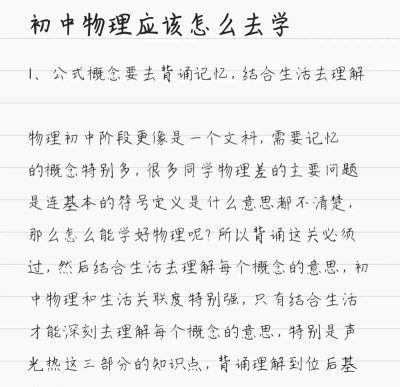 初中物理应该怎么去学
1、公式概念要去背诵记忆,结合生活去理解
物理初中阶段更像是一个文科,需要记忆
的概念特别多,很多同学物理差的主要问题
是连基本的符号定义是什么意思都不清楚,
那么怎么能学好物理呢?所以背诵这关必须
过,然后结合生活去理解每个概念的意思,初
中物理和生活关联度特别强,只有结合生活
才能深刻去理解每个概念的意思,特别是声
光热这三部分的知识点,背诵理解到位后基